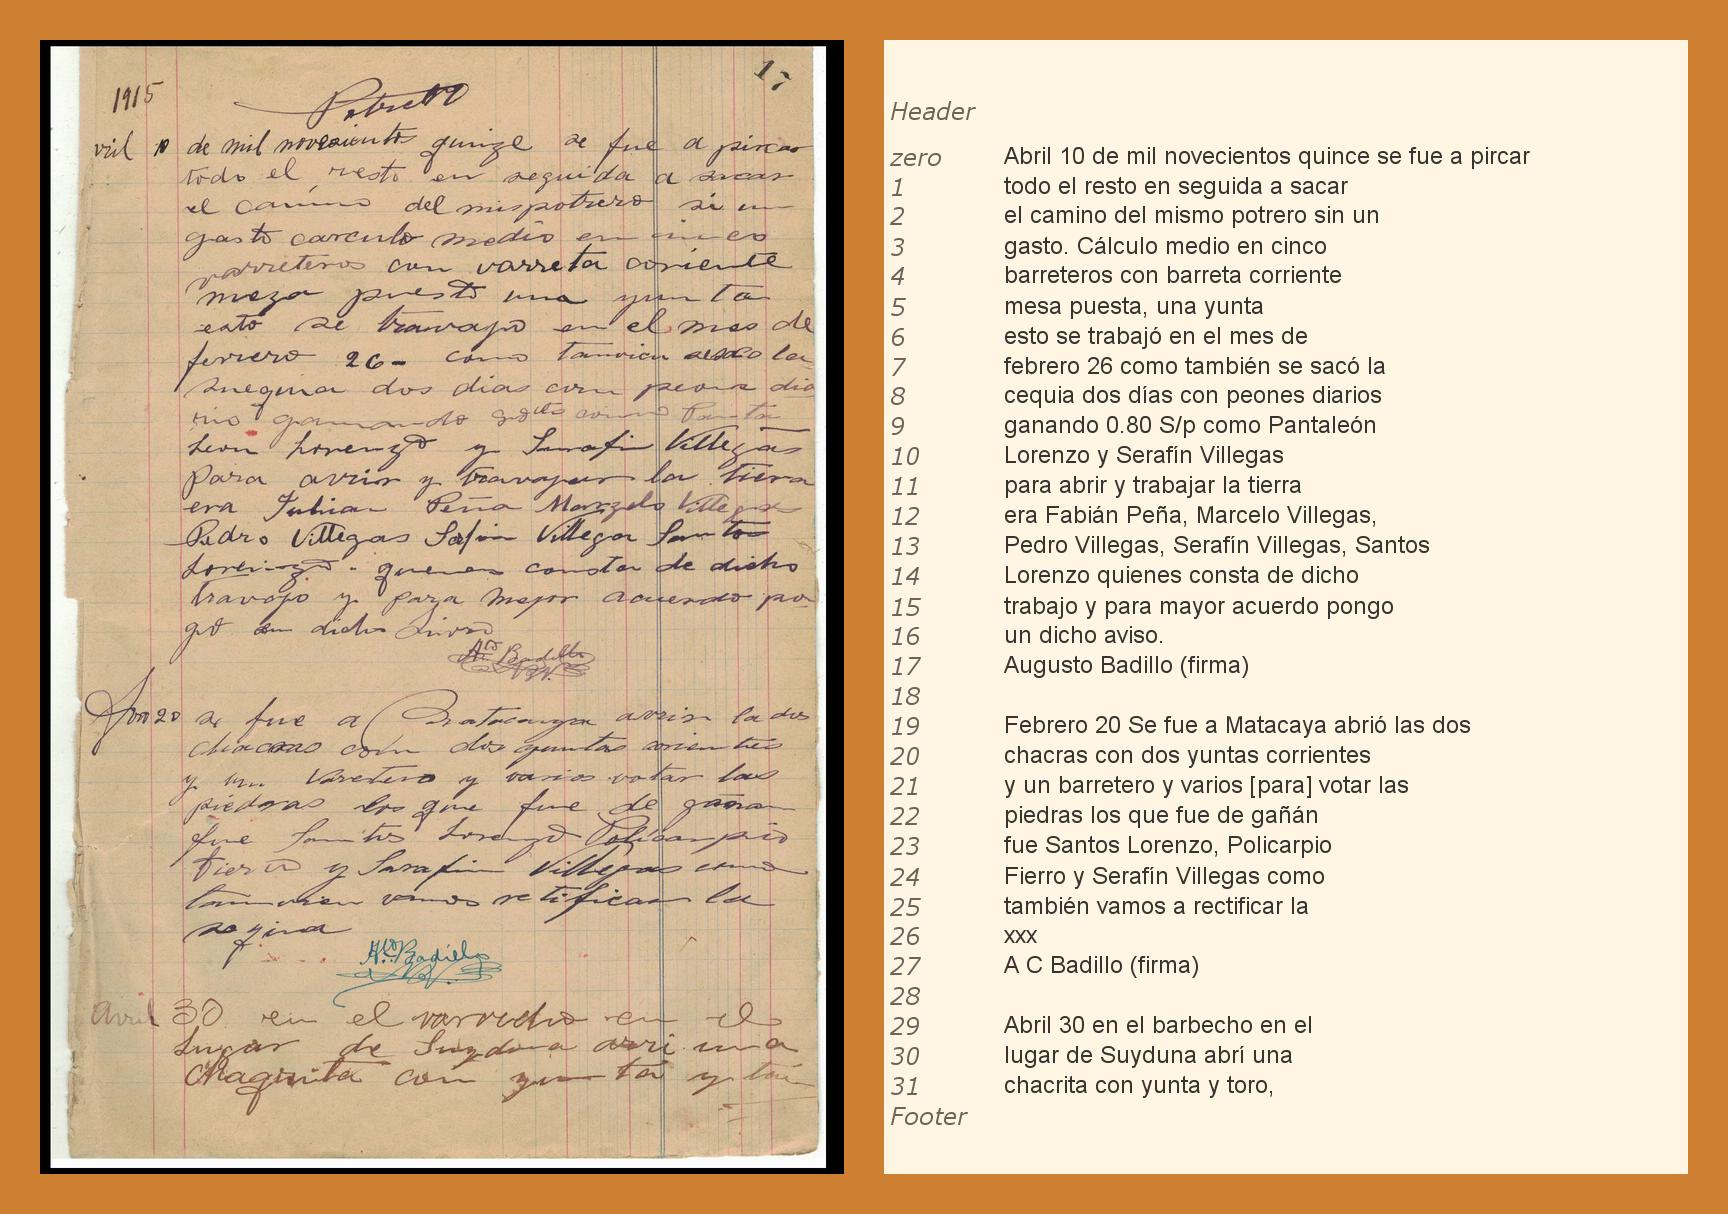 1915
17
Potrero
vril 10 de mil novesiento quinze se fue a pircar
todo el resto en seguida a sacar
el camino del mis potrero si un
gasto carculo medio en cinco
varreteros con varreta coriente
meza puesto una yunta
esto se travajo en el mes de
ferrero 26- como tanvien la
dos dias con peons dia
rio ganando como Panta
leon Lorenzo y Serafin Villegas
para avrir y travajar la tierra
era Fabian Peña Marzelo Villegas
Pedro Villegas Safin Villegas Santos
Lorenzo - quenes consta de dicho
travajo y para mejor acuerdo pon
go un dicho
Badillo
20 se fue a Matacaya avrir la dos
chacras com dos yuntas corientes
y un varetero y varios votar las
piedras los que fue de gañan
fue Santos Lorenzo Policarpio
Fierro y Sarafin Villegas como
tanvien vamos retificar la
Badillo
Avril 30 en el varvecho en el
Lugar de Suyduna avri una
chagrita con yunta y
Header
zero Abril 10 de mil novecientos quince se fue a pircar
1 todo el resto en seguida a sacar
2 el camino del mismo potrero sin un
3 gasto. Cálculo medio en cinco
4 barreteros con barreta corriente
5 mesa puesta, una yunta
6 esto se trabajó en el mes de
7 febrero 26 como también se sacó la
8 cequia dos días con peones diarios
9 ganando 0.80 S/p como Pantaleón
10 Lorenzo y Serafín Villegas
11 para abrir y trabajar la tierra
12 era Fabián Peña, Marcelo Villegas,
13 Pedro Villegas, Serafín Villegas, Santos
14 Lorenzo quienes consta de dicho
15 trabajo y para mayor acuerdo pongo
16 un dicho aviso.
17 Augusto Badillo (firma)
18
19 Febrero 20 Se fue a Matacaya abrió las dos
20 chacras con dos yuntas corrientes
21 y un barretero y varios [para] votar las
22 piedras los que fue de gañán
23 fue Santos Lorenzo, Policarpio
24 Fierro y Serafín Villegas como
25 también vamos a rectificar la
26 xxx
27 A C Badillo (firma)
28
29 Abril 30 en el barbecho en el
30 lugar de Suyduna abrí una
31 chacrita con yunta y toro,
Footer